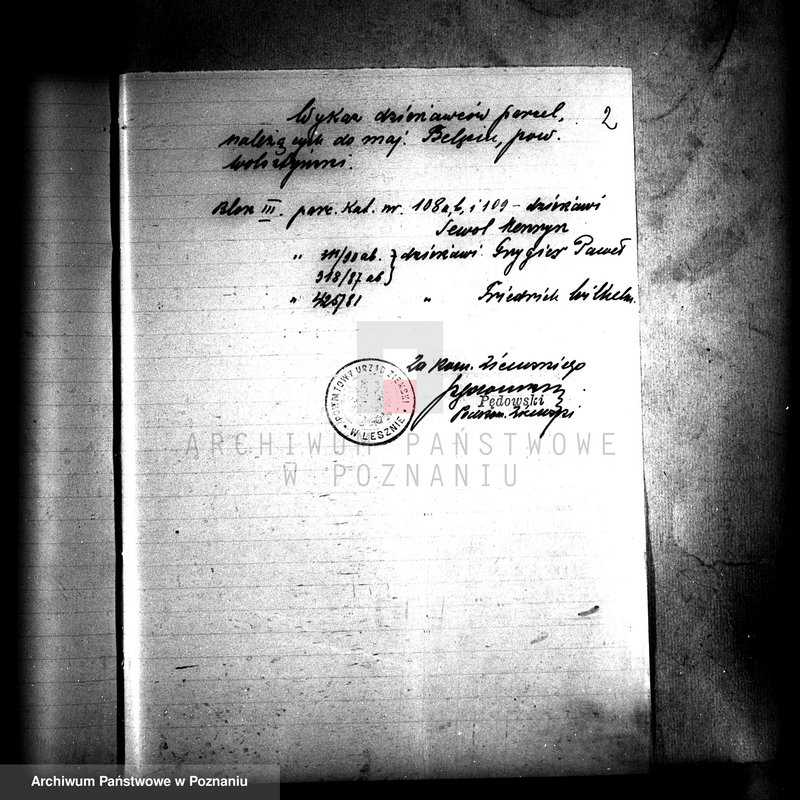 2
Wykaz dzierżawców parcel,
należących do maj. Bełęcin, pow.
wolsztyński.
Blok III. parc. kat. nr. 108a,b, i 109 - dzierżawi
Henryk
" /90 ab. } dzierżawi Grygier Paweł
318/87 ab }
" 425/81 " Friedrich Wilhelm.
Za Kom. Ziemskiego
Pędowski
Podkom. Ziemski
POWIATOWY URZĄD ZIEMSKI
W LESZNIE
ARCHIWUM PAŃSTWOWE
W POZNANIU
Archiwum Państwowe w Poznaniu